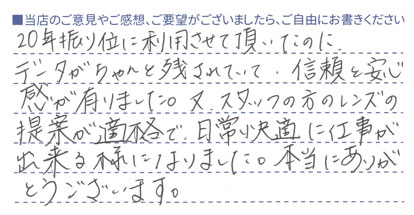 ■当店のご意見やご感想、ご要望がございましたら、ご自由にお書きください
20年振り位に利用させて頂いたのに、
データがちゃんと残されていて、信頼と安心
感が有りました。又、スタッフの方のレンズの
提案が適格で、日常り快適に仕事が
出来る様になりました。本当にありが
とうございます。